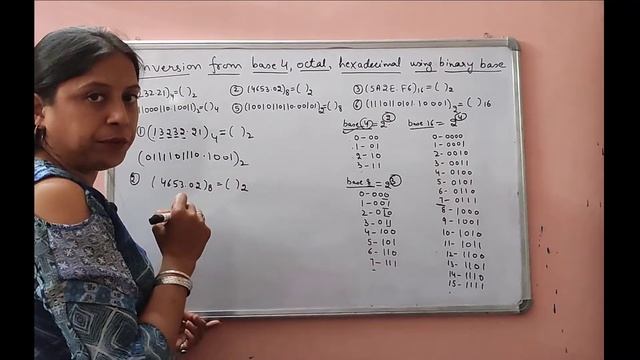 nversion from base 4, octal, hexadecimal using binary base
232.21)4=( )2 ② (4653.02)8=( )2 ③ (5A2E.F6)16=( )2
1000110.10011)2=( )4 ⑤ (10010110110.00101)2=( )8 ⑥ (1110110101.10001)2=( )16
① (13232.21)4=( )2
(0111101110.1001)2
② (4653.02)8=( )2
base (4)=2②
0-00
1-01
2-10
3-11
base 8=2③
0-000
1-001
2-010
3-011
4-100
5-101
6-110
7-111
base 16=2④
0-0000
1-0001
2-0010
3-0011
4-0100
5-0101
6-0110
7-0111
8-1000
9-1001
10-1010
11-1011
12-1100
13-1101
14-1110
15-1111